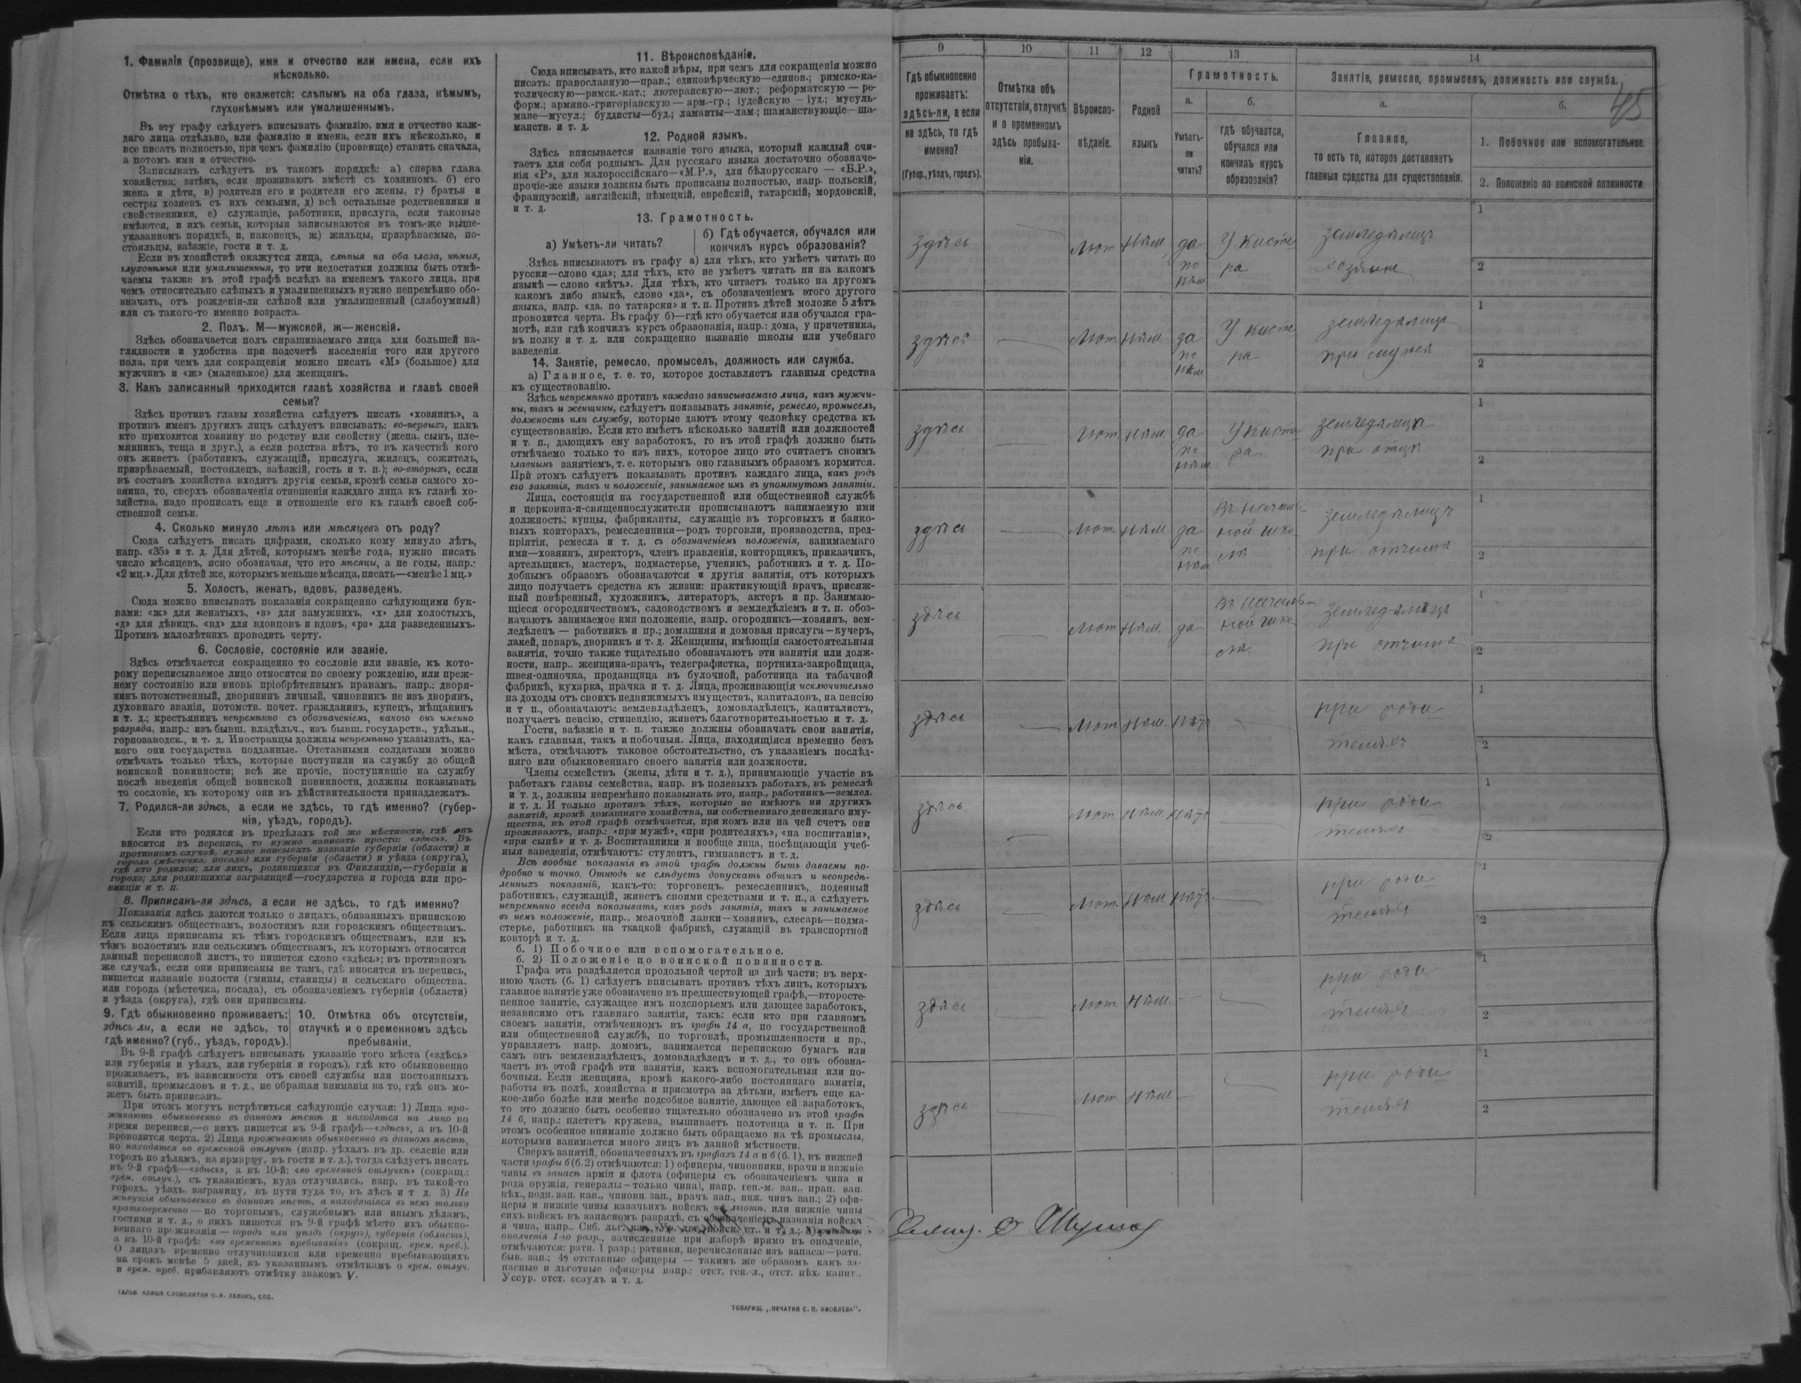 1. Фамилія (прозвище), имя и отчество или имена, если ихъ
нѣсколько.
Отмѣтка о тѣхъ, кто окажется: слѣпымъ на оба глаза, нѣмымъ,
глухонѣмымъ или умалишеннымъ.
Въ эту графу слѣдуетъ вписывать фамилію, имя и отчество каж-
даго лица отдѣльно, или фамилію и имена, если ихъ нѣсколько, и
все писать полностью, при чемъ фамилію (прозвище) ставить сначала,
а потомъ имя и отчество.
Записывать слѣдуетъ въ такомъ порядкѣ: а) сперва глава
хозяйства; затѣмъ, если проживаютъ вмѣстѣ съ хозяиномъ. б) его
жена и дѣти, в) родители его и родители его жены, г) братья и
сестры хозяевъ съ ихъ семьями, д) всѣ остальные родственники и
свойственники, е) служащіе, работники, прислуга, если таковые
имѣются, и ихъ семьи, которыя записываются въ томъ-же выше-
указанномъ порядкѣ, и, наконецъ, ж) жильцы, призрѣваемые, по-
стояльцы, заѣзжіе, гости и т. д.
Если въ хозяйствѣ окажутся лица, слѣпыя на оба глаза, нѣмыя,
глухонѣмыя или умалишенныя, то эти недостатки должны быть отмѣ-
чаемы также въ этой графѣ вслѣдъ за именемъ такого лица, при
чемъ относительно слѣпыхъ и умалишенныхъ нужно непремѣнно обо-
значать, отъ рожденія-ли слѣпой или умалишенный (слабоумный)
или съ такого-то именно возраста.
2. Полъ. М—мужской, ж—женскій.
Здѣсь обозначается полъ спрашиваемаго лица для большей на-
глядности и удобства при подсчетѣ населенія того или другого
пола. при чемъ для сокращенія можно писать «М» (большое) для
мужчинъ и «ж» (маленькое) для женщинъ.
3. Какъ записанный приходится главѣ хозяйства и главѣ своей
семьи?
Здѣсь противъ главы хозяйства слѣдуетъ писать «хозяинъ», а
противъ именъ другихъ лицъ слѣдуетъ вписывать: во-первыхъ, какъ
кто приходится хозяину по родству или свойству (жена, сынъ, пле-
мянникъ, теща и друг.), а если родства нѣтъ, то въ качествѣ кого
онъ живетъ (работникъ, служащій, прислуга, жилецъ, сожитель,
призрѣваемый, постоялецъ, заѣзжій, гость и т. п.); во-вторыхъ, если
въ составъ хозяйства входятъ другія семьи, кромѣ семьи самого хо-
зяина, то, сверхъ обозначенія отношенія каждаго лица къ главѣ хо-
зяйства, надо прописать еще и отношеніе его къ главѣ своей соб-
ственной семьи.
4. Сколько минуло лѣтъ или мѣсяцевъ отъ роду?
Сюда слѣдуетъ писать цифрами, сколько кому минуло лѣтъ,
напр. «35» и т. д. Для дѣтей, которымъ менѣе года, нужно писать
число мѣсяцевъ, ясно обозначая, что это мѣсяцы, а не годы, напр.:
«2 мц.». Для дѣтей же, которымъ меньше мѣсяца, писать—«менѣе 1 мц.»
5. Холостъ, женатъ, вдовъ, разведенъ.
Сюда можно вписывать показанія сокращенно слѣдующими бук-
вами: «ж» для женатыхъ, «з» для замужнихъ, «х» для холостыхъ,
«д» для дѣвицъ, «вд» для вдовцовъ и вдовъ, «рз» для разведенныхъ.
Противъ малолѣтнихъ проводить черту.
6. Сословіе, состояніе или званіе.
Здѣсь отмѣчается сокращенно то сословіе или званіе, къ кото-
рому переписываемое лицо относится по своему рожденію, или преж-
нему состоянію или вновь пріобрѣтеннымъ правамъ, напр.: дворя-
нинъ потомственный, дворянинъ личный, чиновникъ не изъ дворянъ,
духовнаго званія, потомств. почет. гражданинъ, купецъ, мѣщанинъ
и т. д.; крестьянинъ непремѣнно съ обозначеніемъ, какого онъ именно
разряда, напр.: изъ бывш. владѣльч., изъ бывш. государств., удѣльн.,
горнозаводск., и т. д. Иностранцы должны непремѣнно указывать, ка-
кого они государства подданные. Отставными солдатами можно
отмѣчать только тѣхъ, которые поступили на службу до общей
воинской повинности; всѣ же прочіе, поступившіе на службу
послѣ введенія общей воинской повинности, должны показывать
то сословіе, къ которому они въ дѣйствительности принадлежатъ.
7. Родился-ли здѣсь, а если не здѣсь, то гдѣ именно? (губер-
нія, уѣздъ, городъ).
Если кто родился въ предѣлахъ той же мѣстности, гдѣ онъ
вносится въ перепись, то нужно написать просто: «здѣсь». Въ
противномъ случаѣ, нужно вписывать названіе губерніи (области) и
города (мѣстечка, посада) или губерніи (области) и уѣзда (округа),
гдѣ кто родился; для лицъ, родившихся въ Финляндіи,—губерніи и
города; для родившихся заграницей—государства и города или про-
винціи и т. п.
8. Приписанъ-ли здѣсь, а если не здѣсь, то гдѣ именно?
Показанія здѣсь даются только о лицахъ, обязанныхъ припискою
къ сельскимъ обществамъ, волостямъ или городскимъ обществамъ.
Если лица приписаны къ тѣмъ городскимъ обществамъ, или къ
тѣмъ волостямъ или сельскимъ обществамъ, къ которымъ относится
данный переписной листъ, то пишется слово «здѣсь»; въ противномъ
же случаѣ, если они приписаны не тамъ, гдѣ вносятся въ перепись,
пишется названіе волости (гмины, станицы) и сельскаго общества.
или города (мѣстечка, посада), съ обозначеніемъ губерніи (области)
и уѣзда (округа), гдѣ они приписаны.
9. Гдѣ обыкновенно проживаетъ:
здѣсь-ли, а если не здѣсь, то
гдѣ именно? (губ., уѣздъ, городъ).
10. Отмѣтка объ отсутствіи,
отлучкѣ и о временномъ здѣсь
пребываніи.
Въ 9-й графѣ слѣдуетъ вписывать указаніе того мѣста («здѣсь»
или губернія и уѣздъ, или губернія и городъ), гдѣ кто обыкновенно
проживаетъ, въ зависимости отъ своей службы или постоянныхъ
занятій, промысловъ и т. д., не обращая вниманія на то, гдѣ онъ мо-
жетъ быть приписанъ.
При этомъ могутъ встрѣтиться слѣдующіе случаи: 1) Лица про-
живаютъ обыкновенно въ данномъ мѣстѣ и находятся на лицо во
время переписи,—о нихъ пишется въ 9-й графѣ—«здѣсь», а въ 10-й
проводится черта. 2) Лица проживаютъ обыкновенно въ данномъ мѣстѣ,
но находятся во временной отлучкѣ (напр. уѣхалъ въ др. селеніе или
городъ по дѣламъ, на ярмарку, въ гости и т. д.), тогда слѣдуетъ писать
въ 9-й графѣ—«здѣсь», а въ 10-й: «во временной отлучкѣ» (сокращ.:
врем. отлуч.), съ указаніемъ, куда отлучились, напр. въ такой-то
городъ, уѣздъ, заграницу, въ пути туда то, въ лѣсъ и т. д. 3) Не
живущія обыкновенно въ данномъ мѣстѣ, а находящіяся въ немъ только
кратковременно — по торговымъ, служебнымъ или инымъ дѣламъ,
гостями и т. д., о нихъ пишется въ 9-й графѣ мѣсто ихъ обыкно-
веннаго проживанія — городъ или уѣздъ (округ), губернія (область),
а въ 10-й графѣ: «во временномъ пребываніи» (сокращ. врем. преб.).
О лицахъ временно отлучившихся или временно пребывающихъ
на срокъ менѣе 5 дней, къ указаннымъ отмѣткамъ о врем. отлуч.
и врем. преб. прибавляютъ отмѣтку знакомъ V.
11. Вѣроисповѣданіе.
Сюда вписывать, кто какой вѣры, при чемъ для сокращенія можно
писать: православную—прав.; единовѣрческую—единов.; римско-ка-
толическую—римск.-кат.; лютеранскую—лют.; реформатскую — ре-
форм.; армяно-григоріанскую — арм.-гр.; іудейскую — іуд.; мусуль-
мане—мусул.; буддисты—буд.; ламаиты—лам.; шаманствующіе—ша-
манств. и т. д.
12. Родной языкъ.
Здѣсь вписывается названіе того языка, который каждый счи-
таетъ для себя роднымъ. Для русскаго языка достаточно обозначе-
нія «Р», для малороссійскаго—«М.Р.», для бѣлорусскаго — «Б.Р.»,
прочіе-же языки должны быть прописаны полностью, напр. польскій,
французскій, англійскій, нѣмецкій, еврейскій, татарскій, мордовскій,
и т. д.
13. Грамотность.
а) Умѣетъ-ли читать?
б) Гдѣ обучается, обучался или
кончилъ курсъ образованія?
Здѣсь вписываютъ въ графу а) для тѣхъ, кто умѣетъ читать по
русски—слово «да»; для тѣхъ, кто не умѣетъ читать ни на какомъ
языкѣ — слово «нѣтъ». Для тѣхъ, кто читаетъ только на другомъ
какомъ либо языкѣ, слово «да», съ обозначеніемъ этого другого
языка, напр. «да. по татарски» и т. п. Противъ дѣтей моложе 5 лѣтъ
проводится черта. Въ графу б)—гдѣ кто обучается или обучался гра-
мотѣ, или гдѣ кончилъ курсъ образованія, напр.: дома, у причетника,
въ полку и т. д. или сокращенно названіе школы или учебнаго
заведенія.
14. Занятіе, ремесло, промыселъ, должность или служба.
а) Главное, т. е. то, которое доставляетъ главныя средства
къ существованію.
Здѣсь непремѣнно противъ каждаго записываемаго лица, какъ мужчи-
ны, такъ и женщины, слѣдуетъ показывать занятіе, ремесло, промыселъ,
должность или службу, которые даютъ этому человѣку средства къ
существованію. Если кто имѣетъ нѣсколько занятій или должностей
и т. п., дающихъ ему заработокъ, то въ этой графѣ должно быть
отмѣчаемо только то изъ нихъ, которое лицо это считаетъ своимъ
главнымъ занятіемъ, т. е. которымъ оно главнымъ образомъ кормится.
При этомъ слѣдуетъ показывать противъ каждаго лица, какъ родъ
его занятія, такъ и положеніе, занимаемое имъ въ упомянутомъ занятіи.
Лица, состоящія на государственной или общественной службѣ
и церковно-и-священнослужители прописываютъ занимаемую ими
должность; купцы, фабриканты, служащіе въ торговыхъ и банко-
выхъ конторахъ, ремесленники—родъ торговли, производства, пред-
пріятія, ремесла и т. д. съ обозначеніемъ положенія, занимаемаго
ими—хозяинъ, директоръ, членъ правленія, конторщикъ, приказчикъ,
артельщикъ, мастеръ, подмастерье, ученикъ, работникъ и т. д. По-
добнымъ образомъ обозначаются и другія занятія, отъ которыхъ
лицо получаетъ средства къ жизни: практикующій врачъ, присяж-
ный повѣренный, художникъ, литераторъ, актеръ и пр. Занимаю-
щіеся огородничествомъ, садоводствомъ и земледѣліемъ и т. п. обоз-
начаютъ занимаемое ими положеніе, напр. огородникъ—хозяинъ, зем-
ледѣлецъ — работникъ и пр.; домашняя и домовая прислуга—кучеръ,
лакей, поваръ, дворникъ и т. д. Женщины, имѣющія самостоятельныя
занятія, точно также тщательно обозначаютъ эти занятія или долж-
ности, напр.. женщина-врачъ, телеграфистка, портниха-закройщица,
швея-одиночка, продавщица въ булочной, работница на табачной
фабрикѣ, кухарка, прачка и т. д. Лица, проживающія исключительно
на доходы отъ своихъ недвижимыхъ имуществъ, капиталовъ, на пенсію
и т п., обозначаютъ: землевладѣлецъ, домовладѣлецъ, капиталистъ,
получаетъ пенсію, стипендію, живетъ благотворительностью и т. д.
Гости, заѣзжіе и т. п. также должны обозначать свои занятія,
какъ главныя, такъ и побочныя. Лица, находящіяся временно безъ
мѣста, отмѣчаютъ таковое обстоятельство, съ указаніемъ послѣд-
няго или обыкновеннаго своего занятія или должности.
Члены семействъ (жены, дѣти и т. д.), принимающіе участіе въ
работахъ главы семейства, напр. въ полевыхъ работахъ, въ ремеслѣ
и т. д., должны непремѣнно показывать это, напр., работникъ—землед.
и т. д. И только противъ тѣхъ, которые не имѣютъ ни другихъ
занятій, кромѣ домашняго хозяйства, ни собственнаго денежнаго иму-
щества, въ этой графѣ отмѣчается, при комъ или на чей счетъ они
проживаютъ, напр.: «при мужѣ», «при родителяхъ», «на воспитаніи»,
«при сынѣ» и т. д. Воспитанники и вообще лица, посѣщающія учеб-
ныя заведенія, отмѣчаютъ: студентъ, гимназистъ и т. д.
Всѣ вообще показанія въ этой графѣ должны быть даваемы по-
дробно и точно. Отнюдь не слѣдуетъ допускать общихъ и неопредѣ-
ленныхъ показаній, какъ-то: торговецъ, ремесленникъ, поденный
работникъ, служащій, живетъ своими средствами и т. п., а слѣдуетъ
непремѣнно всегда показывать, какъ родъ занятія, такъ и занимаемое
въ немъ положеніе, напр., мелочной лавки—хозяинъ, слесарь—подма-
стерье, работникъ на ткацкой фабрикѣ, служащій въ транспортной
конторѣ и т. д.
б. 1) Побочное или вспомогательное.
б. 2) Положеніе по воинской повинности.
Графа эта раздѣляется продольной чертой на двѣ части; въ верх-
нюю часть (б. 1) слѣдуетъ вписывать противъ тѣхъ лицъ, которыхъ
главное занятіе уже обозначено въ предшествующей графѣ,—второсте-
пенное занятіе, служащее имъ подспорьемъ или дающее заработокъ,
независимо отъ главнаго занятія, такъ: если кто при главномъ
своемъ занятіи, отмѣченномъ въ графѣ 14 а, по государственной
или общественной службѣ, по торговлѣ, промышленности и пр.,
управляетъ напр. домомъ, занимается перепискою бумагъ или
самъ онъ землевладѣлецъ, домовладѣлецъ и т. д., то онъ обозна-
чаетъ въ этой графѣ эти занятія, какъ вспомогательныя или по-
бочныя. Если женщина, кромѣ какого-либо постояннаго занятія,
работы въ полѣ, хозяйства и присмотра за дѣтьми, имѣетъ еще ка-
кое-либо болѣе или менѣе подсобное занятіе, дающее ей заработокъ,
то это должно быть особенно тщательно обозначено въ этой графѣ
14 б, напр.: плететъ кружева, вышиваетъ полотенца и т. п. При
этомъ особенное вниманіе должно быть обращаемо на тѣ промыслы,
которыми занимается много лицъ въ данной мѣстности.
Сверхъ занятій, обозначенныхъ въ графахъ 14 а и б (б. 1), въ нижней
части графы б (б. 2) отмѣчаются: 1) офицеры, чиновники, врачи и нижніе
чины въ запасѣ арміи и флота (офицеры съ обозначеніемъ чина и
рода оружія, генералы—только чина), напр. ген.-м. зап., прап. зап.
пѣх., подп. зап. кав., чиновн. зап., врачъ зап., ниж. чинъ зап.; 2) офи-
церы и нижніе чины казачьихъ войскъ на льготѣ, или нижніе чины
сихъ войскъ въ запасномъ разрядѣ, съ обозначеніемъ названія войска
ополченія 1-го разр., зачисленные при наборѣ прямо въ ополченіе,
отмѣчаются: ратн. 1 разр.; ратники, перечисленные изъ запаса:—ратн.
быв. зап.; 4) отставные офицеры — такимъ же образомъ какъ за-
пасные и льготные офицеры напр.: отст. ген.-л., отст. пѣх. капит.,
Уссур. отст. есаулъ и т. д.
ТОВАРИЩ. „ПЕЧАТНЯ С. П. ЯКОВЛЕВА".
9 10 11 12 13 14
45
Гдѣ обыкновенно
проживаетъ:
здѣсь-ли, а если
не здѣсь, то гдѣ
именно?
(Губер., уѣздъ, городъ).
Отмѣтка объ
отсутствіи, отлучкѣ
и о временномъ
здѣсь пребыва-
ніи.
Вѣроиспо-
вѣданіе.
Родной
языкъ
Грамотность.
а.
Умѣетъ-
ли
читать?
б.
гдѣ обучается,
обучался или
кончилъ курсъ
образованія?
Занятіе, ремесло, промыселъ, должность или служба.
а.
Главное,
то есть то, которое доставляетъ
главныя средства для существованія.
б.
1. Побочное или вспомогательное.
2. Положеніе по воинской повинности.
здѣсь Лют. нѣм. да У кисте земледѣлецъ 1
по нѣм ра хозяинъ 2
здѣсь Лют. нѣм. да У кисте земледѣлецъ 1
по нѣм ра 2
здѣсь Лют. нѣм. да У кисте земледѣлецъ 1
по нѣм ра при отцѣ 2
здѣсь Лют. нѣм. да Въ началь- ной шко- лѣ земледѣлецъ 1
по нѣм при отчимѣ 2
здѣсь Лют. нѣм. да Въ началь- ной шко- лѣ земледѣлецъ 1
при отчимѣ 2
здѣсь Лют. нѣм. нѣтъ при роди 1
теляхъ 2
здѣсь Лют. нѣм. нѣтъ при роди 1
теляхъ 2
здѣсь Лют. нѣм. нѣтъ при роди 1
теляхъ 2
здѣсь Лют. нѣм. — при роди 1
теляхъ 2
здѣсь Лют. нѣм. — при роди 1
теляхъ 2